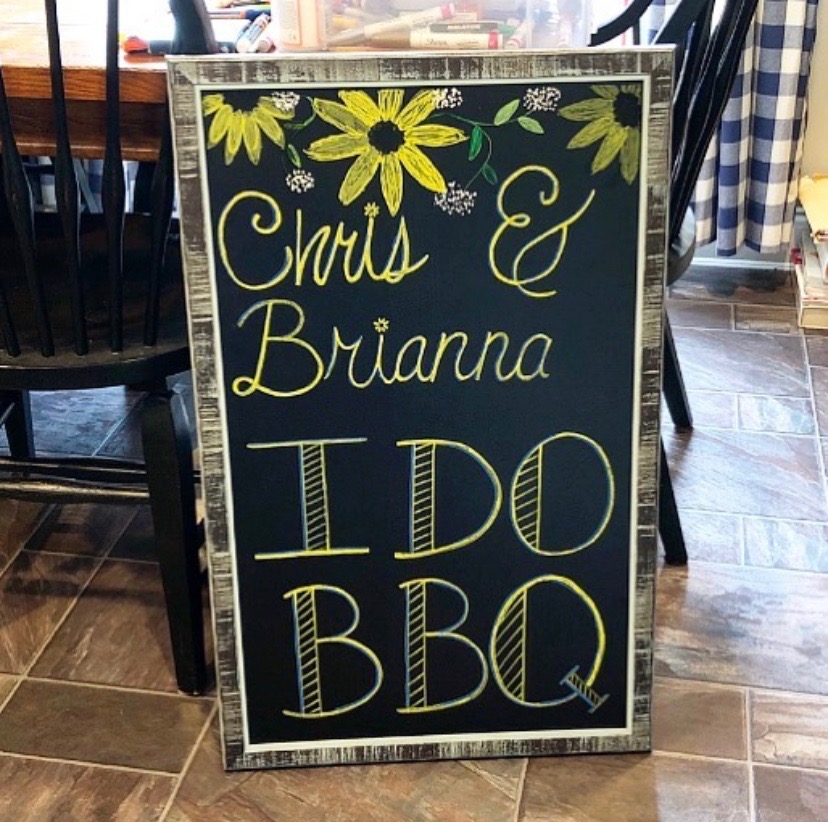 Chris &
Brianna
I DO
BBQ